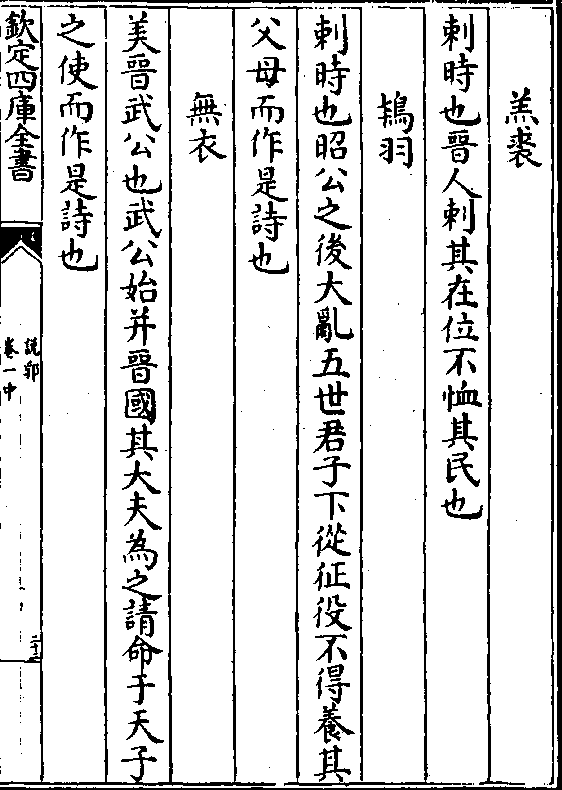 羔裘
刺時也晉人刺其在位不恤其民也
鴇羽
刺時也昭公之後大亂五世君子下從征役不得養其
父母而作是詩也
無衣
美晉武公也武公始并晉國其大夫為之請命于天子
之使而作是詩也
欽定四庫全書
說郛
卷一中
二十三